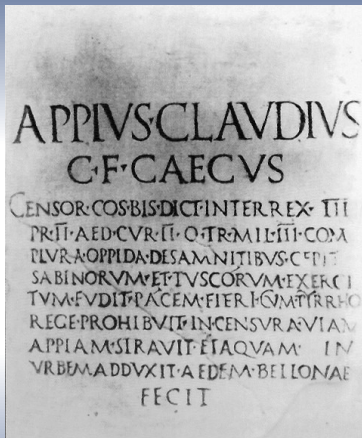 APPIVS·CLAVDIVS
C·F·CAECVS
CENSOR·COS·BIS·DICT·INTERREX·III
PR·II·AED·CVR·II·Q·TR·MIL·III·COM
PLVRA·OPPIDA·DESAMNITIBVS·CEPIT
SABINORVM·ET·TVSCORVM·EXERCI
TVM·FVDIT·PACEM·FIERI·CVM·PYRRHO
REGE·PROHIBVIT·IN·CENSVRA·VIAM
APPIAM·STRAVIT·ETAQVAM· IN
VRBEM·ADDVXIT·AEDEM·BELLONAE
FECIT